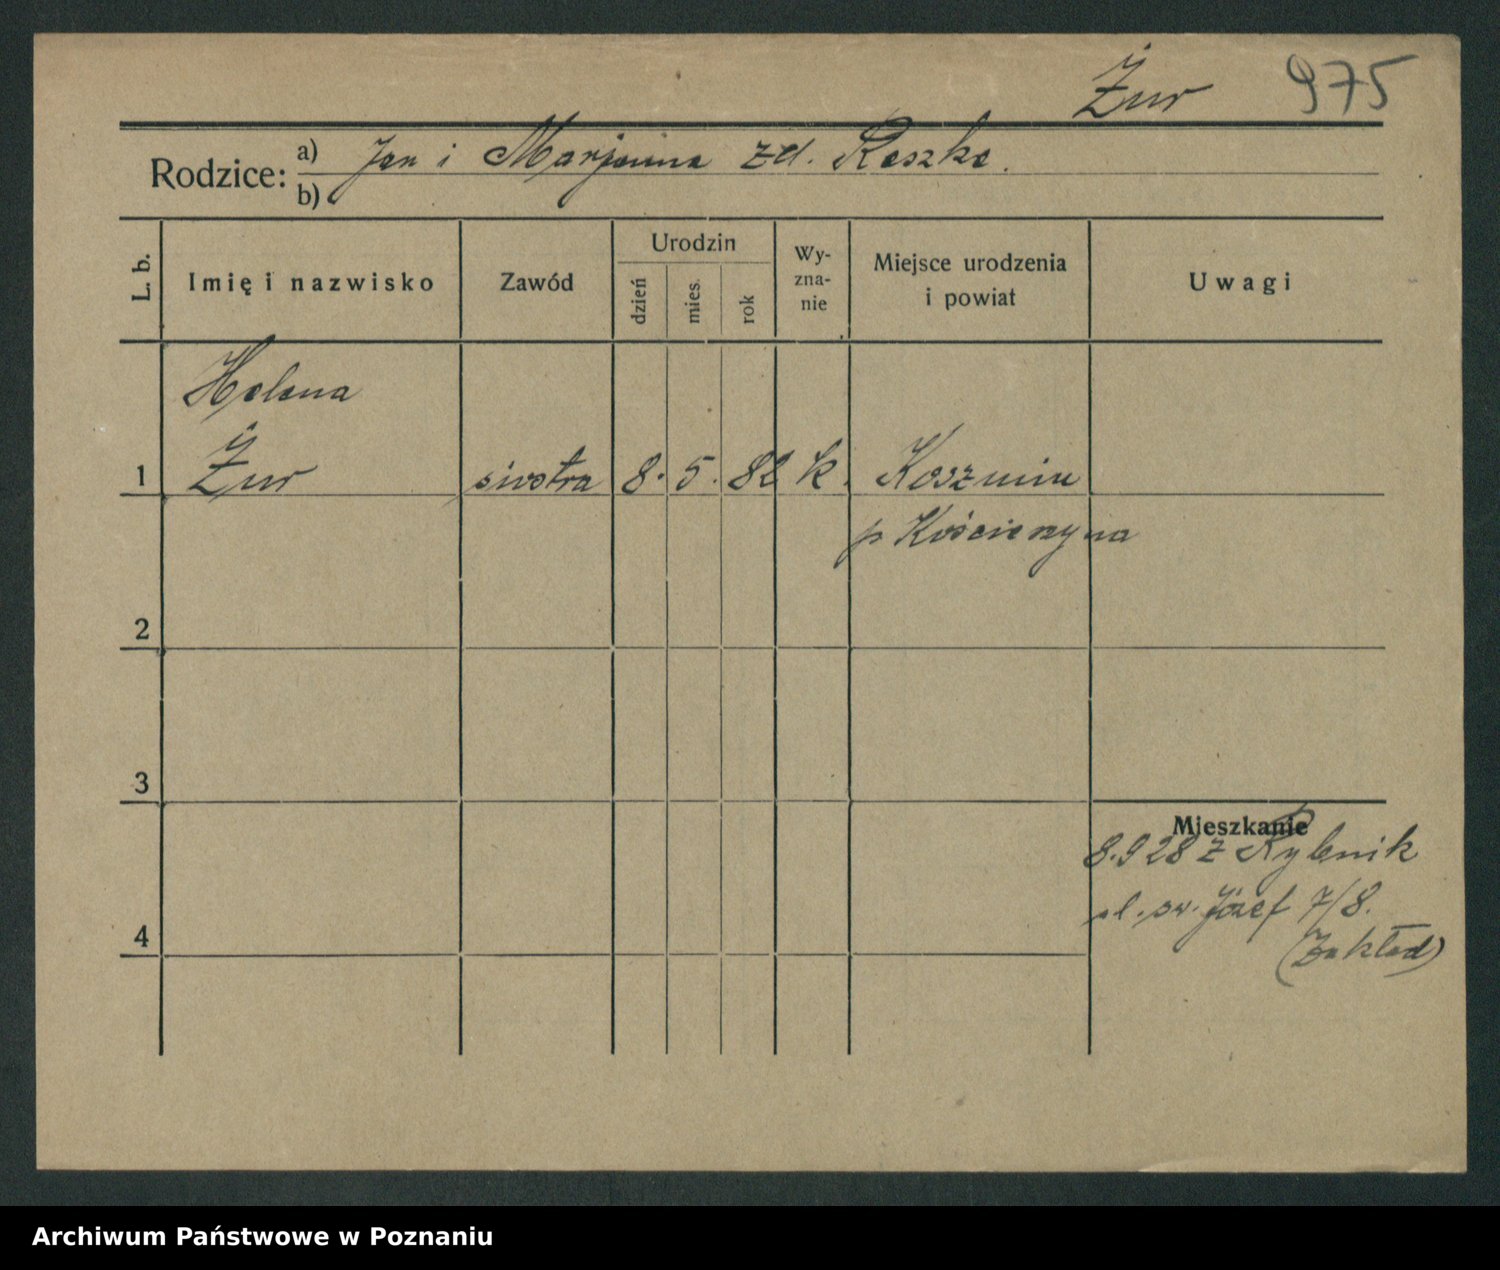 Żur 975
Rodzice: a) Jan i Marjanna zd. Reszke.
b)
L. b. Imię i nazwisko Zawód Urodzin dzień mies. rok Wy-zna-nie Miejsce urodzenia i powiat Uwagi
Helena
1 Żur siostra 8. 5. 82 k. Koszmin
p Kościerzyna
2
3
Mieszkanie
8.9 28 z Rybnik
ul. św. Józef 7/8.
4 (Zakład)
Archiwum Państwowe w Poznaniu